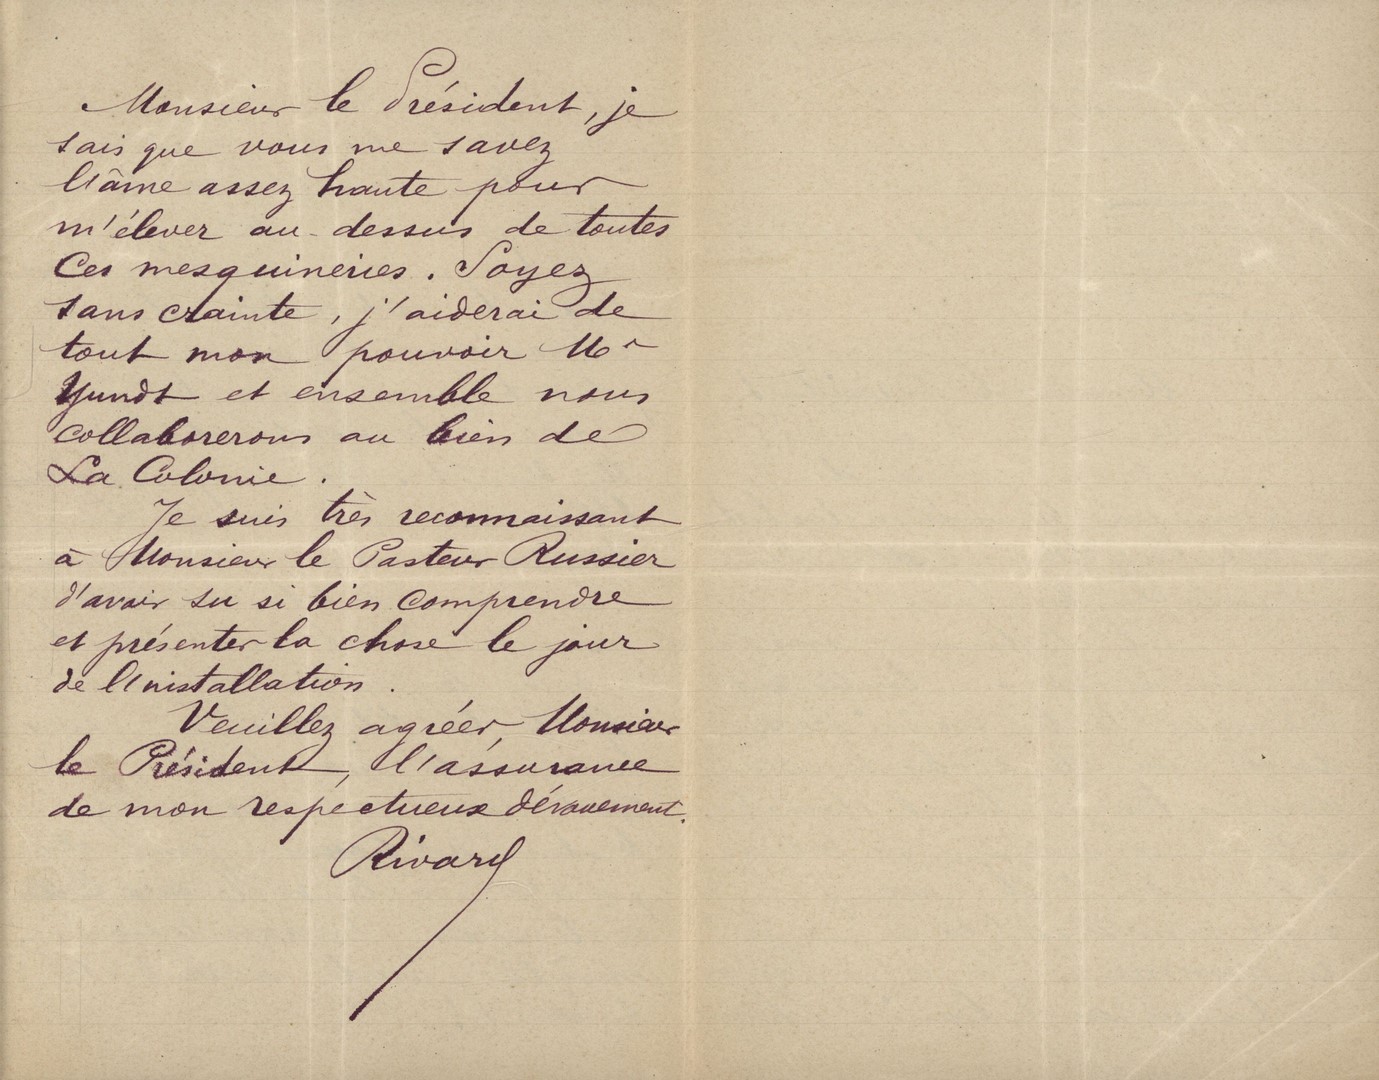 Monsieur le Président, je
sais que vous me savez
l'âme assez haute pour
m'élever au-dessus de toutes
ces mesquineries. Soyez
sans crainte, j'aiderai de
tout mon pouvoir Mr
Yundt et ensemble nous
collaborerons au bien de
La Colonie.
Je suis très reconnaissant
à Monsieur le Pasteur Russier
d'avoir su si bien comprendre
et présenter la chose le jour
de l'installation.
Veuillez agréer, Monsieur
le Président, l'assurance
de mon respectueux dévouement.
Rivard